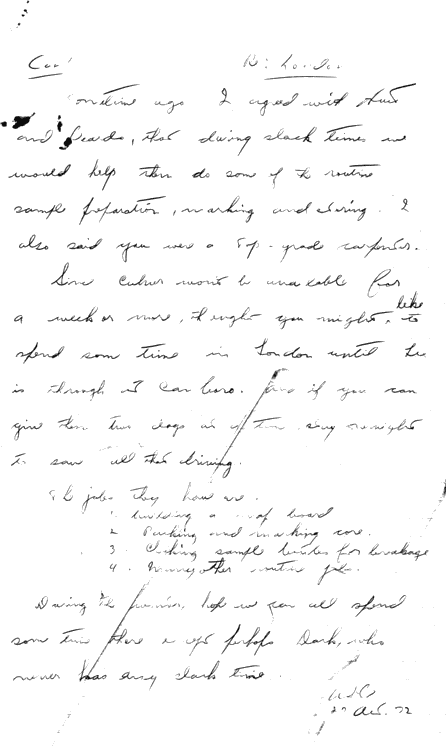 Re: London
Sometime ago I agreed with
and , that during slack times we
would help them do some of the routine
sample preparation, marking and storing. I
also said you were a top-grade carpenter.
Since won't be available for
a week or more, thought you might like to
spend some time in London until he
is through at . And if you can
give them two days at a time, stay overnight
to save all that driving.
The jobs they have are.
1. building a map board
2. Packing and marking core.
3. Checking sample bottles for breakage
4. Many other routine jobs.
During the , hope we can all spend
some time there except perhaps , who
never has any slack time.
27 Oct. 72